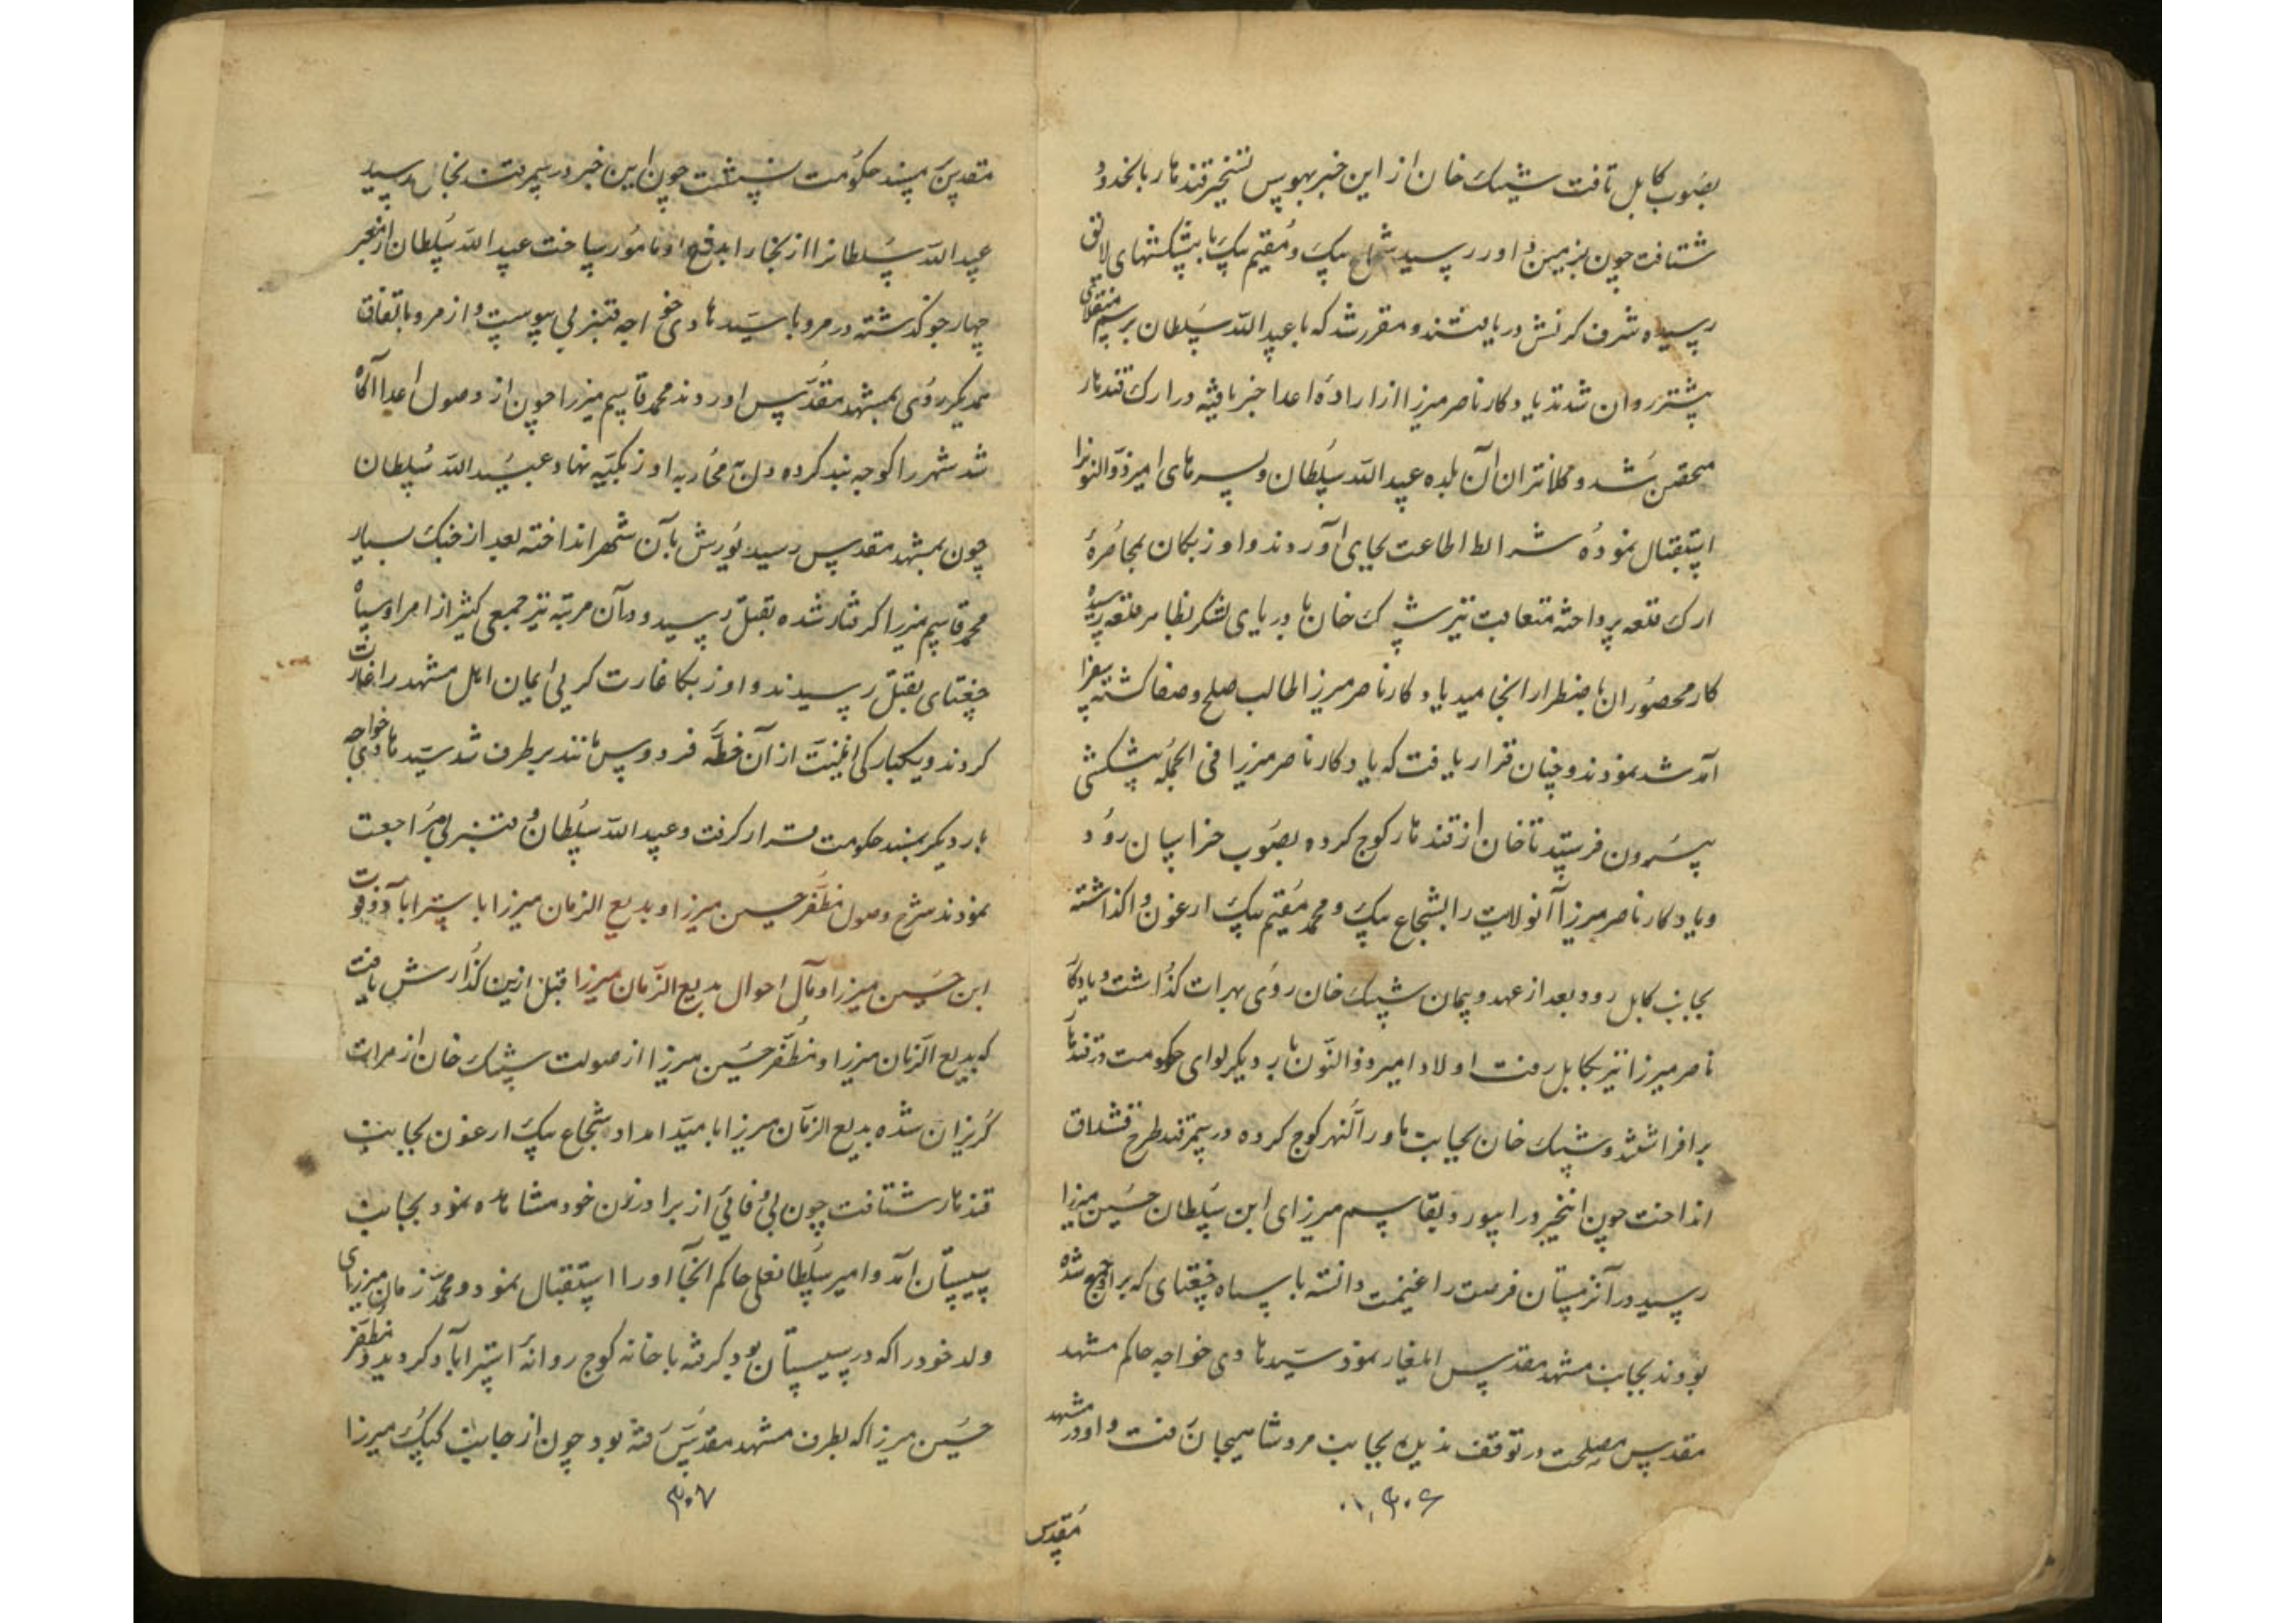 بصوب کابل تافت شیبک خان از این خبر بهوس تسخیر قندهار بانحدود
شتافت چون بزمین داور رسید شجاع بیک و مقیم بیک با پیشکشهای لائق
رسیده شرف کرنش دریافتند و مقرر شد که با عبید الله سلطان برسم منقلای
پیشتر روان شدند یادکار ناصر میرزا از اراده اعدا خبر یافته در ارک قندهار
متحصن شد و کلانتران آن بلده عبید الله سلطان و پسرهای امیر ذو النونرا
استقبال نموده شرائط اطاعت بجای آوردند و اوزبکان بمحاصرهٔ
ارک قلعه پرداخته متعاقب نیز شیبک خان با دریای لشکر بظاهر قلعه رسیده
کار محصوران باضطرار انجامید یادکار ناصر میرزا طالب صلح و صفا کشته سفرا
آمد شد نمودند و چنان قرار یافت که یادکار ناصر میرزا فی الجمله پیشکشی
بیرون فرستد تا خان از قندهار کوچ کرده بصوب خراسان رود
و یادکار ناصر میرزا آنولایت را بشجاع بیک و محمد مقیم بیک ارغون واکذاشته
بجانب کابل رود بعد از عهد و پیمان شیبک خان روی بهرات کذاشت و یادکار
ناصر میرزا نیز بکابل رفت اولاد امیر ذو النون بار دیکر لوای حکومت در قندهار
برافراشتند و شیبک خان بجانب ماوراء النهر کوچ کرده در سمرقند طرح قشلاق
انداخت چون اینخبر در ابیورد بقاسم میرزای ابن سلطان حسین میرزا
رسید در آنزمستان فرصت را غنیمت دانسته با سپاه چغتای که برو جمع شده
بودند بجانب مشهد مقدس ایلغار نمود سید هادی خواجه حاکم مشهد
مقدس مصلحت در توقف ندیده بجانب مرو شاهیجان رفت و او در مشهد
۳۰۶
مقدس
مقدس بمسند حکومت نشست چون این خبر در سمرقند بخان رسید
عبید الله سلطانرا از بخارا بدفع او مامور ساخت عبید الله سلطان از معبر
چهارجو کذشته در مرو با سید هادی خواجه قنبر بی پیوست و از مرو باتفاق
یکدیکر روی بمشهد مقدس اوردند محمد قاسم میرزا چون از وصول اعدا آکاه
شد شهر را کوچه بند کرده دل بر محاربه اوزبکیه نهاد عبید الله سلطان
چون بمشهد مقدس رسید یورش بآن شهر انداخته بعد از جنک بسیار
محمد قاسم میرزا کرفتار شده بقتل رسید و در آن مرتبه نیز جمعی کثیر از امرا و سپاه
چغتای بقتل رسیدند و اوزبکان غارت کر بی ایمان اهل مشهد را غارت
کردند و یکبارکی امنیت از آن خطه فردوس مانند برطرف شد سید هادی خواجه
بار دیکر بمسند حکومت قرار کرفت و عبید الله سلطان و قنبر بی مراجعت
نمودند شرح وصول مظفر حسین میرزا و بدیع الزمان میرزا باستراباد و فوت
ابن حسین میرزا و مآل احوال بدیع الزمان میرزا قبل ازین کذارش یافت
که بدیع الزمان میرزا و مظفر حسین میرزا از صولت شیبک خان از هرات
کریزان شده بدیع الزمان میرزا بامید امداد شجاع بیک ارغون بجانب
قندهار شتافت چون بی وفائی از برادر زن خود مشاهده نمود بجانب
سیستان آمد و امیر سلطانعلی حاکم آنجا او را استقبال نمود و محمد زمان میرزای
ولد خود را که در سیستان بود کرفته با خانه کوچ روانه استراباد کردید و مظفر
حسین میرزا که بطرف مشهد مقدس رفته بود چون از جانب کپک میرزا
۳۰۷